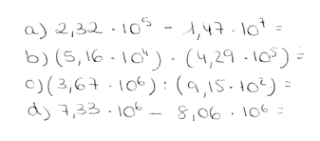 a) 2,32 · 10⁵ - 1,47 · 10⁷ =
b) (5,16 · 10⁴) · (4,29 · 10⁵) =
c) (3,67 · 10⁶) : (9,15 · 10²) =
d) 7,33 · 10⁶ - 8,06 · 10⁶ =